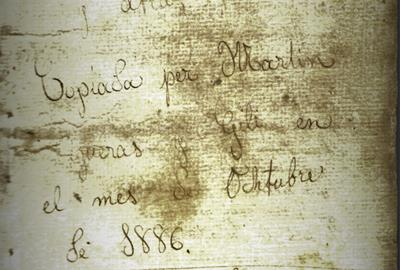 Copiada per Martin
y Gili en
el mes de Ochtubre
de 1886.